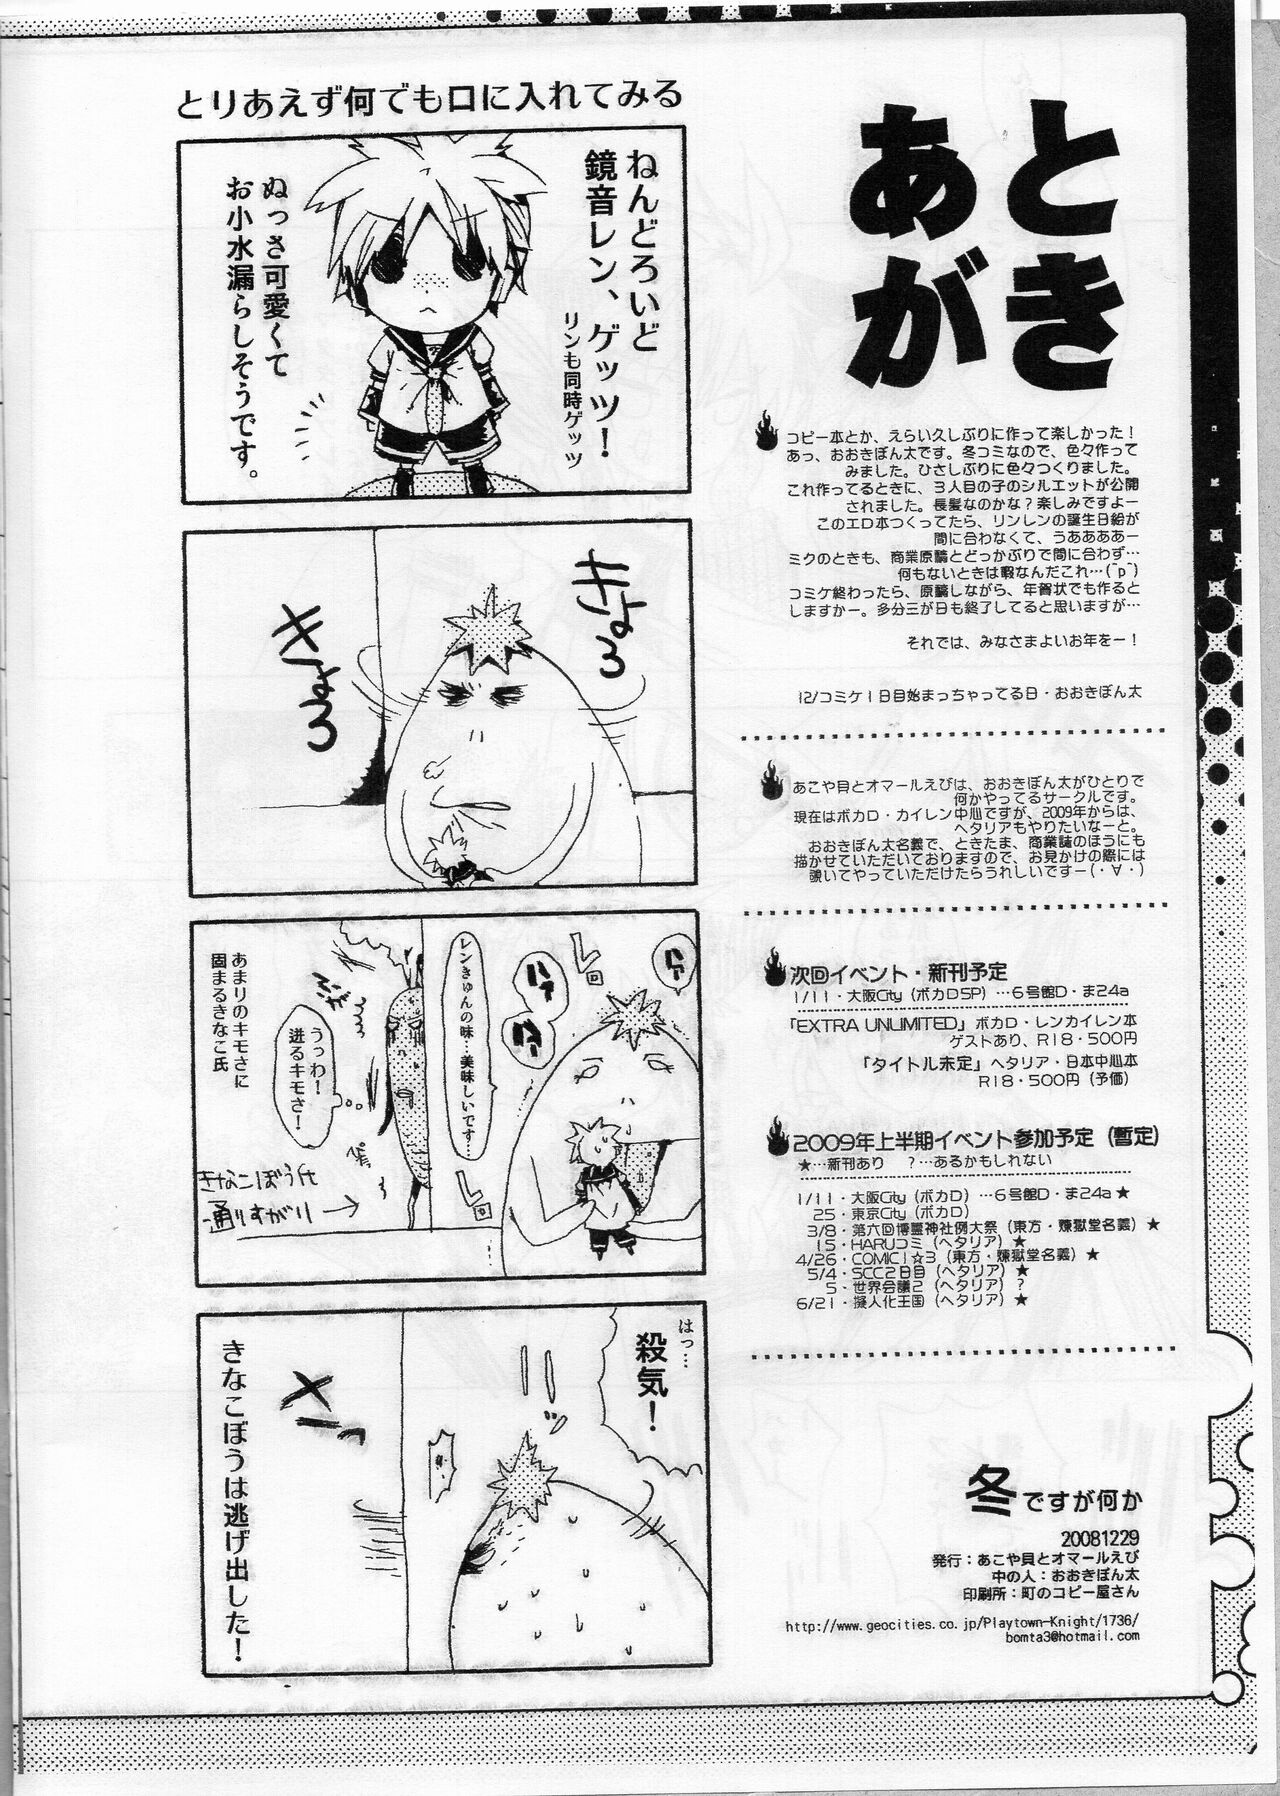 あとがき
コピー本とか、えらい久しぶりに作って楽しかった！
あっ、おおきぼん太です。冬コミなので、色々作って
みました。ひさしぶりに色々つくりました。
これ作ってるときに、３人目の子のシルエットが公開
されました。長髪なのかな？楽しみですよー
このエロ本つくってたら、リンレンの誕生日絵が
間に合わなくて、うああああー
ミクのときも、商業原稿とどっかぶりで間に合わず…
何もないときは暇なんだこれ…(˘p˘)
コミケ終わったら、原稿しながら、年賀状でも作ると
しますかー。多分三が日も終了してると思いますが…
それでは、みなさまよいお年をー！
12/コミケ１日目始まっちゃってる日・おおきぼん太
あこや貝とオマールえびは、おおきぼん太がひとりで
何かやってるサークルです。
現在はボカロ・カイレン中心ですが、2009年からは、
ヘタリアもやりたいなーと。
おおきぼん太名義で、ときたま、商業誌のほうにも
描かせていただいておりますので、お見かけの際には
覗いてやっていただけたらうれしいですー(・∀・)
次回イベント・新刊予定
1/11・大阪City（ボカロSP）…６号館D・ま24a
「EXTRA UNLIMITED」ボカロ・レンカイレン本
ゲストあり、R18・500円
「タイトル未定」ヘタリア・日本中心本
R18・500円（予価）
2009年上半期イベント参加予定（暫定）
★…新刊あり　？…あるかもしれない
1/11・大阪City（ボカロ）…６号館D・ま24a★
25・東京City（ボカロ）
3/8・第六回博麗神社例大祭（東方・煉獄堂名義）★
15・HARUコミ（ヘタリア）★
4/26・COMIC1☆3（東方・煉獄堂名義）★
5/4・SCC２日目（ヘタリア）★
5・世界会議２（ヘタリア）？
6/21・擬人化王国（ヘタリア）★
冬ですが何か
20081229
発行：あこや貝とオマールえび
中の人：おおきぼん太
印刷所：町のコピー屋さん
http://www.geocities.co.jp/Playtown-Knight/1736/
bomta3@hotmail.com
とりあえず何でも口に入れてみる
ねんどろいど
鏡音レン、ゲッツ！
リンも同時ゲッツ
ぬっさ可愛くて
お小水漏らしそうです。
きょろ
きょろ
ハァ
レ
回
ハァ
ハァ
レンきゅんの味…美味しいです…
レ
回
うっわ！
迸るキモさ！
あまりのキモさに
固まるきなこ氏
きなこぼう氏
通りすがり
はっ…
殺気！
きなこぼうは逃げ出した！